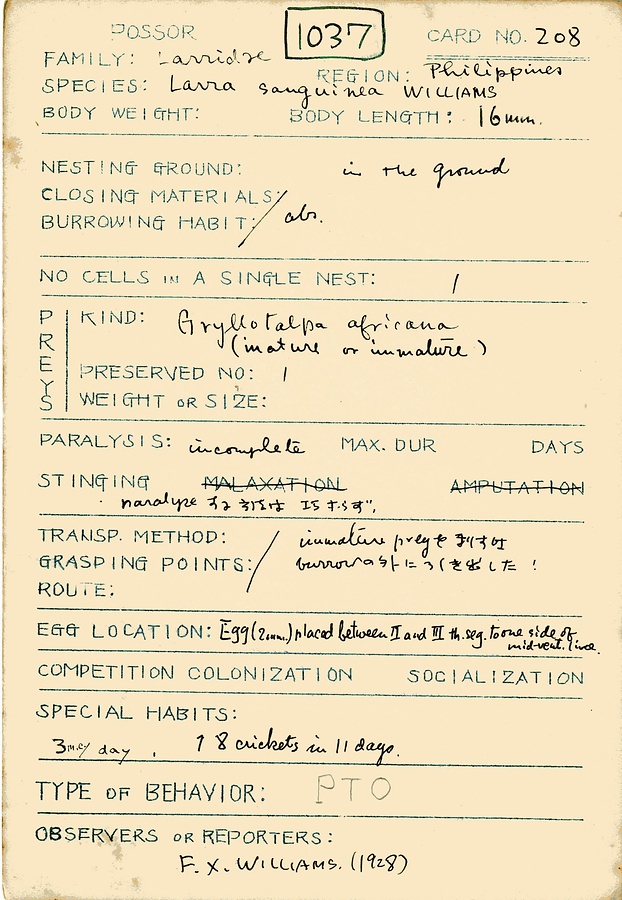 POSSOR 1037 CARD NO. 208
FAMILY: Larridae
REGION: Philippines
SPECIES: Larra sanguinea WILLIAMS
BODY WEIGHT: BODY LENGTH: 16mm.
NESTING GROUND: in the ground
CLOSING MATERIALS:
BURROWING HABIT: / abs.
NO CELLS IN A SINGLE NEST: 1
PREYS
KIND: Gryllotalpa africana
(mature or immature)
PRESERVED NO: 1
WEIGHT OR SIZE:
PARALYSIS: incomplete MAX. DUR DAYS
STINGING MALAXATION AMPUTATION
paralyze する
TRANSP. METHOD: immature prey を
GRASPING POINTS: / burrow の外に 出した!
ROUTE:
EGG LOCATION: Egg (2mm.) placed between II and III th. seg. to one side of
mid-vent. line.
COMPETITION COLONIZATION SOCIALIZATION
SPECIAL HABITS:
day, 18 crickets in 11 days.
TYPE OF BEHAVIOR: PTO
OBSERVERS OR REPORTERS:
F. X. WILLIAMS. (1928)